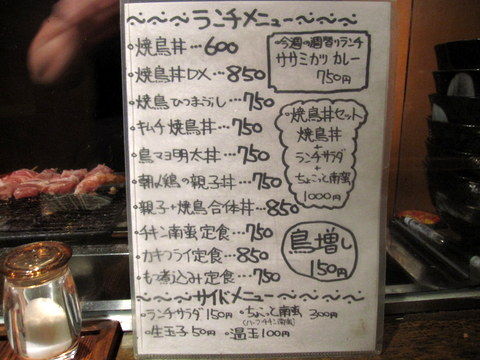 ランチメニュー
・焼鳥丼…600
・焼鳥丼DX…850
・焼鳥ひつまぶし…750
・キムチ焼鳥丼…750
・鳥マヨ明太丼…750
・朝〆鶏の親子丼…750
・親子+焼鳥合体丼…850
・チキン南蛮定食…750
・カキフライ定食…850
・もつ煮込み定食…750
・今週の週替りランチ
ササミカツカレー
750円
・焼鳥丼セット
焼鳥丼
+
ランチサラダ
+
ちょこっと南蛮
1000円
鳥増し
150円
サイドメニュー
・ランチサラダ 150円 ・ちょこっと南蛮 300円
(ハーフチキン南蛮)
・生玉子 50円 ・温玉 100円